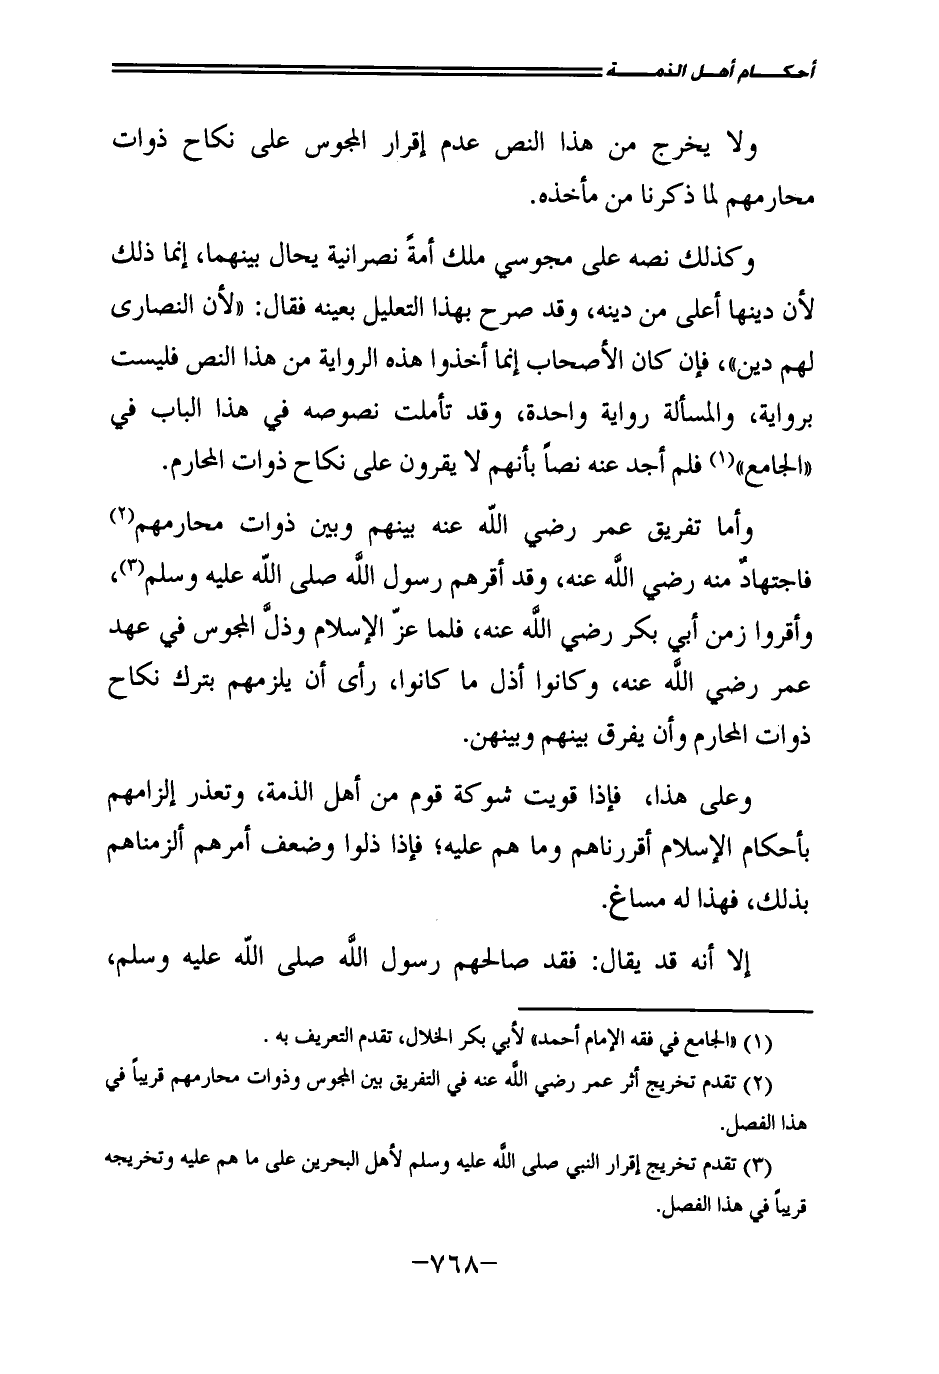 أحكـــام أهــل الذمـــة
ولا يخرج من هذا النص عدم إقرار المجوس على نكاح ذوات
محارمهم لما ذكرنا من مأخذه.
وكذلك نصه على مجوسي ملك أمةً نصرانية يحال بينهما، إنما ذلك
لأن دينها أعلى من دينه، وقد صرح بهذا التعليل بعينه فقال: «لأن النصارى
لهم دين»، فإن كان الأصحاب إنما أخذوا هذه الرواية من هذا النص فليست
برواية، والمسألة رواية واحدة، وقد تأملت نصوصه في هذا الباب في
«الجامع»(١) فلم أجد عنه نصاً بأنهم لا يقرون على نكاح ذوات المحارم.
وأما تفريق عمر رضي اللَّه عنه بينهم وبين ذوات محارمهم(٢)
فاجتهادٌ منه رضي اللَّه عنه، وقد أقرهم رسول اللَّه صلى اللَّه عليه وسلم(٣)،
وأقروا زمن أبي بكر رضي اللَّه عنه، فلما عزّ الإسلام وذلَّ المجوس في عهد
عمر رضي اللَّه عنه، وكانوا أذل ما كانوا، رأى أن يلزمهم بترك نكاح
ذوات المحارم وأن يفرق بينهم وبينهن.
وعلى هذا، فإذا قويت شوكة قوم من أهل الذمة، وتعذر إلزامهم
بأحكام الإسلام أقررناهم وما هم عليه؛ فإذا ذلوا وضعف أمرهم ألزمناهم
بذلك، فهذا له مساغ.
إلا أنه قد يقال: فقد صالحهم رسول اللَّه صلى اللَّه عليه وسلم،
(١) «الجامع في فقه الإمام أحمد» لأبي بكر الخلال، تقدم التعريف به .
(٢) تقدم تخريج أثر عمر رضي اللَّه عنه في التفريق بين المجوس وذوات محارمهم قريباً في
هذا الفصل.
(٣) تقدم تخريج إقرار النبي صلى اللَّه عليه وسلم لأهل البحرين على ما هم عليه وتخريجه
قريباً في هذا الفصل.
–٧٦٨–